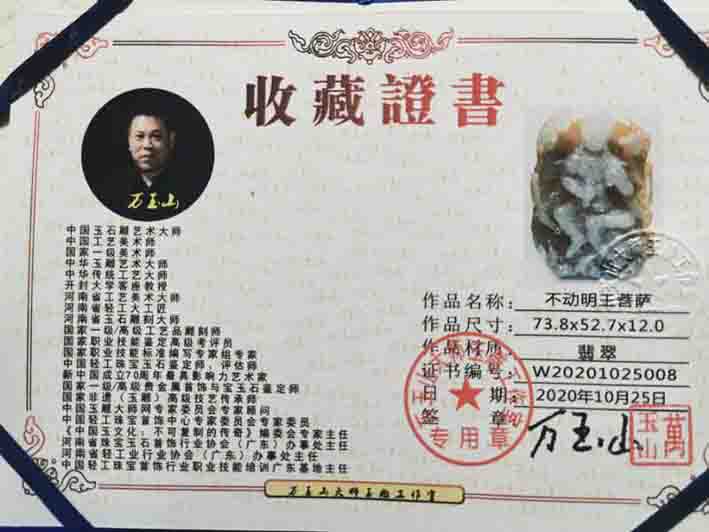 收藏證書
万玉山
中国玉石雕艺术大师
中国工艺美术师
国家一级美术师
中华玉雕艺术大师
中华传统工艺大师
开封大学客座教授
河南省工艺美术大师
河南省轻工大工匠
河南省玉石雕刻大师
国家一级/高级工艺品雕刻师
国家职业技能鉴定高级考评员
国家职业技能标准编写专家组专家
中国轻工珠宝玉石鉴定师，评估师
新中国成立70周年最具影响力艺术家
国家一级/高级贵金属首饰与宝玉石鉴定师
国家非遗（玉雕）高级技艺传承师
中国玉雕大师网专家委员会专家顾问
中国轻工珠宝首饰中心专家委员会专家委员
《中国玉文化，不可复制的传奇》编委会专家主任
河南省珠宝玉石首饰行业协会（广东）办事处主任
河南省轻工业行业协会（广东）办事处主任
中国轻工珠宝首饰行业职业技能培训广东基地主任
作品名称： 不动明王菩萨
作品尺寸： 73.8x52.7x12.0
作品材质： 翡翠
证书编号： W20201025008
日期： 2020年10月25日
签章 万玉山
专用章
萬玉山
万玉山大师玉雕工作室